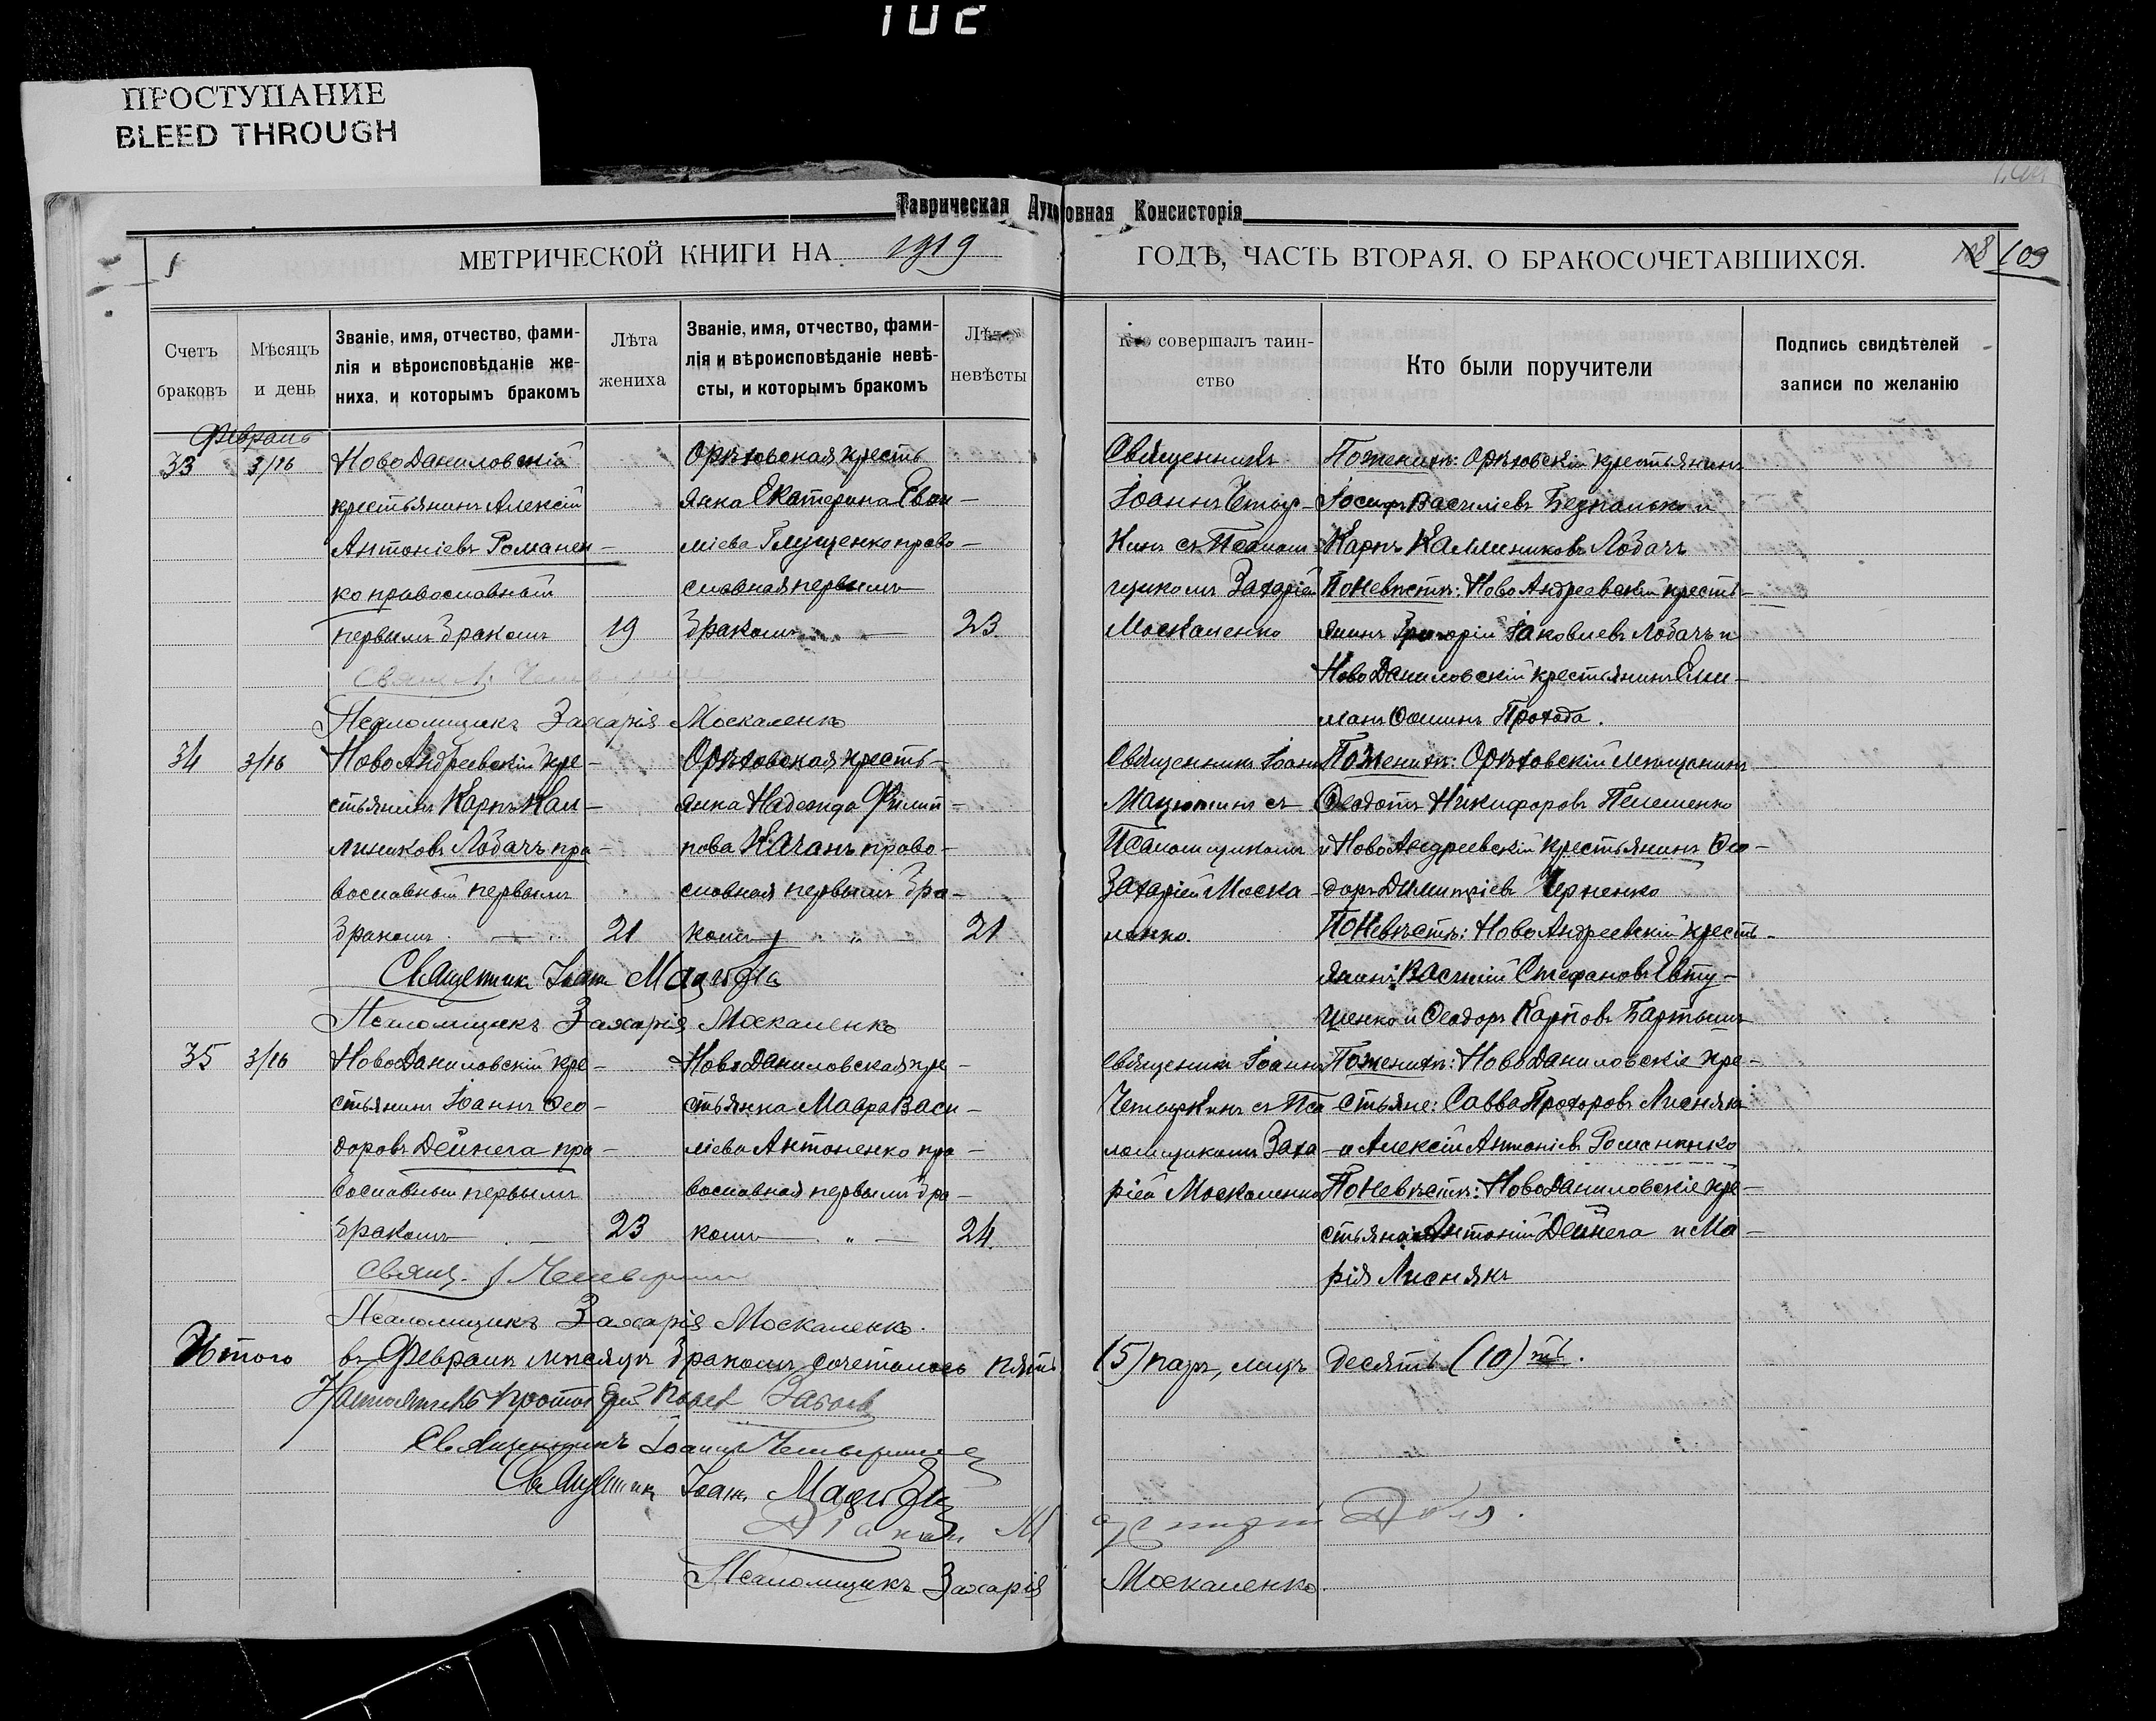 102
ПРОСТУПАНИЕ
BLEED THROUGH
Таврическая Духовная Консисторія
МЕТРИЧЕСКОЙ КНИГИ НА 1919
ГОДЪ, ЧАСТЬ ВТОРАЯ, О БРАКОСОЧЕТАВШИХСЯ.
109
Счетъ браковъ
Мѣсяцъ и день
Званіе, имя, отчество, фами-
лія и вѣроисповѣданіе же-
ниха, и которымъ бракомъ
Лѣта
жениха
Званіе, имя, отчество, фами-
лія и вѣроисповѣданіе невѣ-
сты, и которымъ бракомъ
невѣсты
Кто совершалъ таин-
ство
Кто были поручители
Подпись свидѣтелей
записи по желанію
Февраль
33
3/16
НовоДаниловскій
крестьянинъ Алексій
Антоніевъ Романен-
ко православный
первымъ бракомъ
19
Орѣховская кресть
янка Екатерина
Глущенко право-
славная первымъ
бракомъ
23
Священникъ
Іоаннъ
Захаріей
Москаленко
По женихѣ: Орѣховскій крестьянинъ
Іосифъ Василіевъ Безпалько и
Карпъ Каллиниковъ Лобачъ
По невѣстѣ: НовоАндреевскій кресть-
янинъ Григорій Іаковлевъ Лобачъ и
НовоДаниловскій крестьянинъ
Проход­а.
Псаломщикъ Захарія Москаленко
34
3/16
НовоАндреевскій кре-
стьянинъ Карпъ Кал-
линиковъ Лобачъ пра-
вославный первымъ
бракомъ
21
Орѣховская кресть-
янка Надежда Филип-
пова Качанъ право-
славная первымъ бра-
комъ
21
Священникъ Іоаннъ
съ
Псаломщикомъ
Захаріей Моска-
ленко.
По женихѣ: Орѣховскій мѣщанинъ
Ѳеодотъ Никифоровъ Пелешенко
и НовоАндреевскій крестьянинъ Ѳео-
доръ Димитріевъ Черненко
По невѣстѣ: НовоАндреевскій кресть-
янинъ Василій Стефановъ Евту-
шенко и Ѳеодоръ Карповъ
Священникъ Іоаннъ
Псаломщикъ Захарія Москаленко
35
3/16
НовоДаниловскій кре-
стьянинъ Іоаннъ Ѳео-
доровъ Дейнега пра-
вославный первымъ
бракомъ
23
НовоДаниловская кре-
стьянка Мавра Васи-
ліева Антоненко пра-
вославная первымъ бра-
комъ
24
Священникъ Іоаннъ
съ Пса
ломщикомъ Заха-
ріей Москаленко
По женихѣ: НовоДаниловскіе кре-
стьяне: Савва Прохоровъ Лиснякъ
и Алексій Антоніевъ Романенко
По невѣстѣ: НовоДаниловскіе кре-
стьяне Антоній Дейнега и Ма-
рія Лиснякъ
Свящ.
Псаломщикъ Захарія Москаленко.
Итого въ Февралѣ мѣсяцѣ бракомъ сочеталось пять (5) паръ, лицъ десять (10)
Священникъ Іоаннъ
Священникъ Іоаннъ
Псаломщикъ Захарія Москаленко.